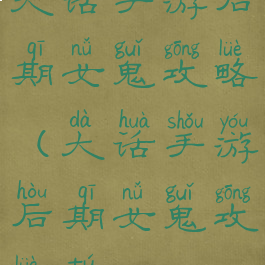 大话手游后
qī nǚ guǐ gōng lüè
期女鬼攻略
dà huà shǒu yóu
（大话手游
hòu qī nǚ guǐ gōng
后期女鬼攻